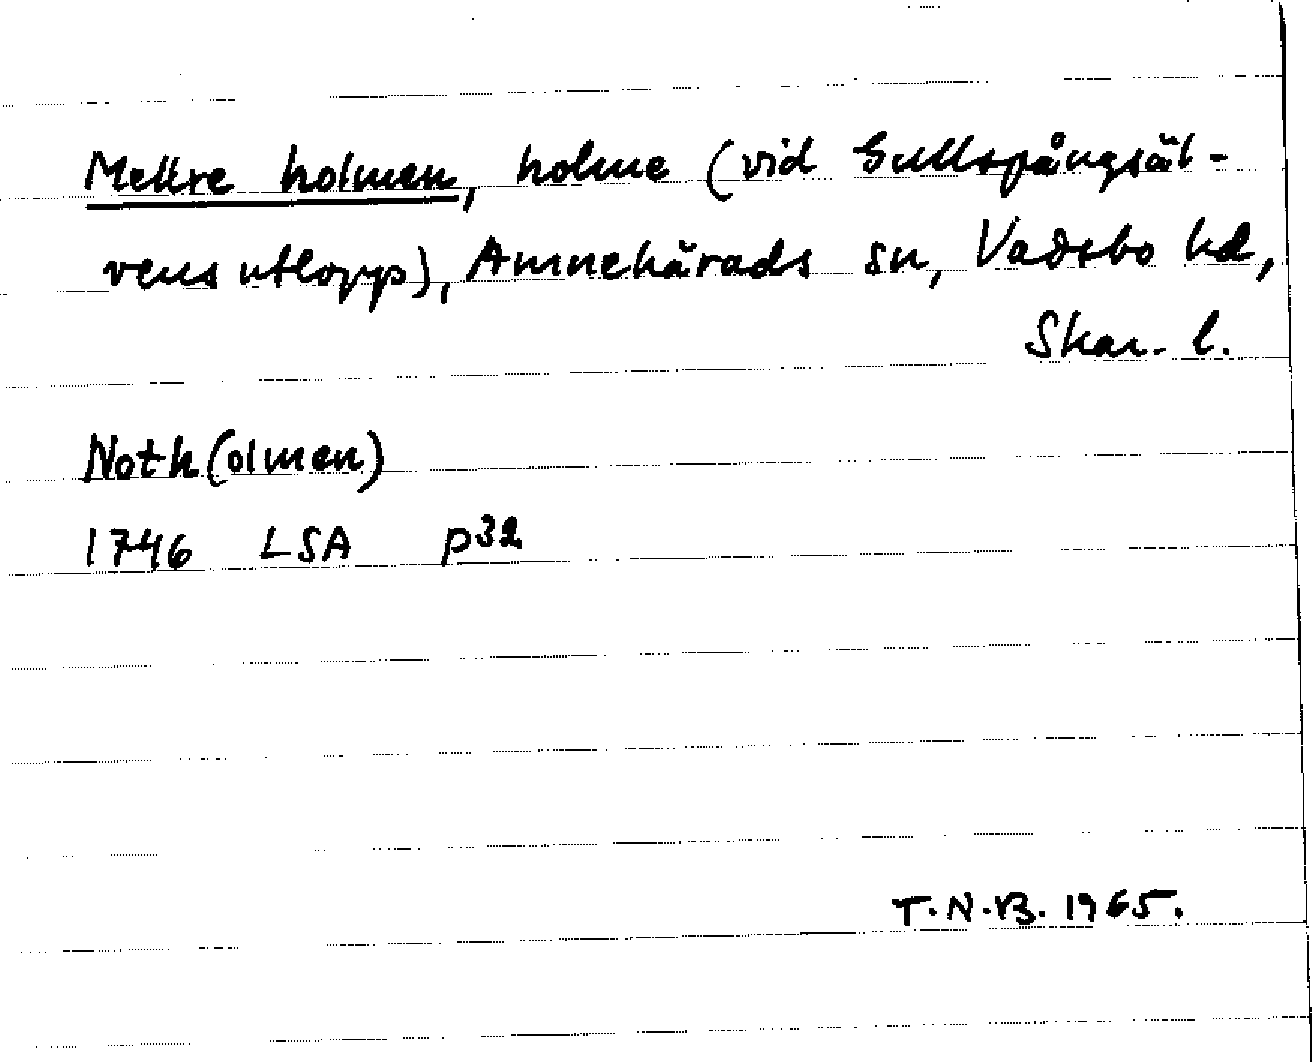 Mellre holmen, holme (vid Gullspångsäl-
vens utlopp), Amnehärads sn, Vadsbo hd,
Skar. l.
Noth(olmen)
1746 LSA p32
T.N.B. 1965.